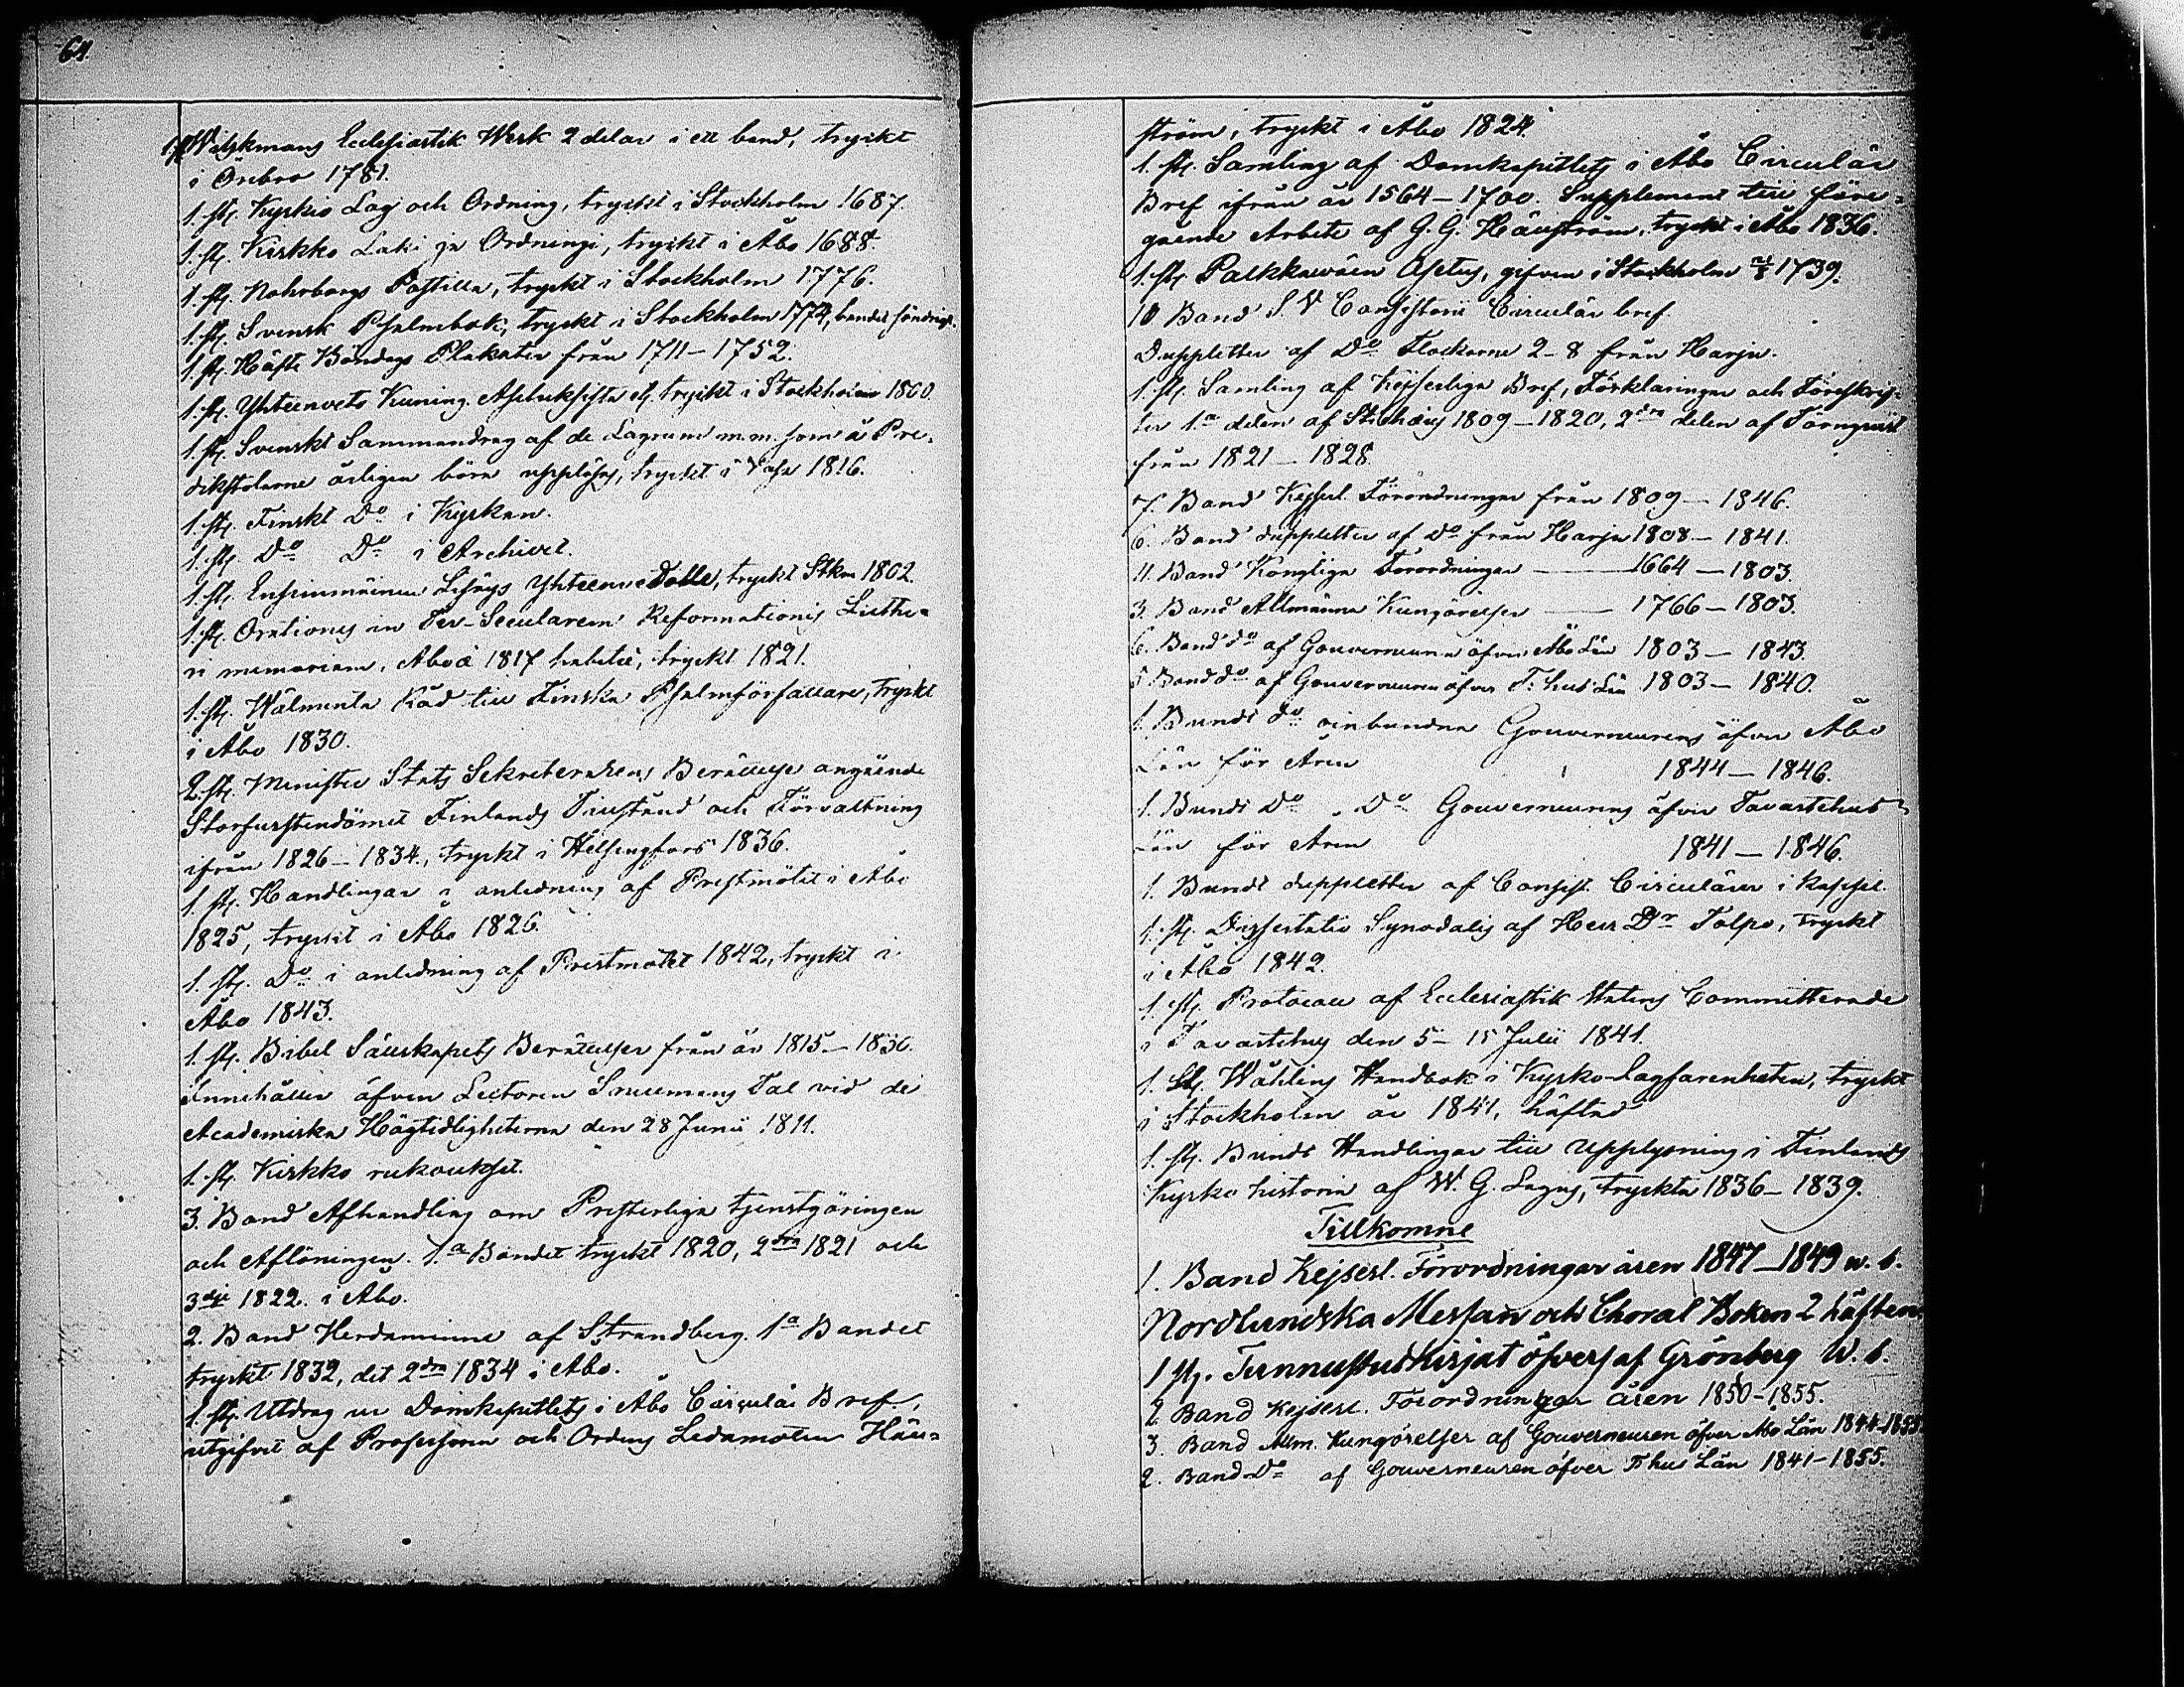 64.
1. st. Wilskmans Ecclesiastik Werk 2 delar i ett band, tryckt
i Örebro 1781.
1. st. Kyrkio Lag och Ordning, tryckt i Stockholm 1687.
1. st. Kirkko Laki ja Ordningi, tryckt i Åbo 1688.
1. st. Nohrborgs Postilla, tryckt i Stockholm 1776.
1. st. Svensk Psalmbok, tryckt i Stockholm 1774, bandet söndrigt.
1. st. Häfte Böndags Plakater från 1711-1752.
1. st. Yhteenveto Kuning. Asetuksista etc tryckt i Stockholm 1800.
1. st. Svenskt Sammandrag af de Lagrum m.m. som å Pre=
dikstolarne årligen böra uppläsas, tryckt i Vasa 1816.
1. st. Finskt Do i Kyrkan.
1. st. Do Do i Archivet.
1. st. Ensimmäinen Lisäys Yhteenvedolle, tryckt Stkm 1802.
1. st. Orationes in Ter-Secularem Reformationis Luthe=
ri memoriam, Aboæ 1817 habitæ, tryckt 1821.
1. st. Wälmenta Råd till Finska Psalmförfattare, tryckt
i Åbo 1830.
2. st. Minister Stats Sekreterarens Berättelse angående
Storfurstendömet Finlands Tillstånd och Förvaltning
ifrån 1826-1834, tryckt i Helsingfors 1836.
1. st. Handlingar i anledning af Prestmötet i Åbo
1825, tryckt i Åbo 1826.
1. st. Do i anledning af Prestmötet 1842, tryckt i
Åbo 1843.
1. st. Bibel Sällskapets Berättelser från år 1815-1830.
Innehåller äfven Lectoren Snellmans Tal vid de
Academiska Högtidligheterna den 28 Junii 1811.
1. st. Kirkko rukoukset.
3. Band Afhandling om Presterliga tjenstgöringen
och Aflöningen. 1a Bandet tryckt 1820, 2dra 1821 och
3dje 1822 i Åbo.
2. Band Herdaminne af Strandberg. 1a Bandet
tryckt 1832, det 2dra 1834 i Åbo.
1. st. Utdrag ur Domkapitlets i Åbo Circulär Bref,
utgifvit af Professoren och Ordens Ledamoten Häll=
ström, tryckt i Åbo 1824.
1. st. Samling af Domkapitlets i Åbo Circulär
Bref ifrån år 1564-1700. Supplement till före=
gående Arbete af G. G. Hällström, tryckt i Åbo 1836.
1. st. Palkkawäen Asetus, gifven i Stockholm 1739.
10 Band S. V Consistorii Circulär bref.
Duppletter af Do Flockarne 2-8 från Harju.
1. st. Samling af Kejserliga Bref, Förklaringar och Föreskrif=
ter 1a delen af Stichæus 1809-1820, 2dra delen af Törnqvist
från 1821-1828.
7. Band Kejserl. Förordningar från 1809-1846.
6. Band duppletter af Do från Harju 1808-1841.
11. Band Kongliga Förordningar 1664-1803.
3. Band Allmänna Kungörelser 1766-1803.
6. Band do af Gouverneuren öfver Åbo Län 1803-1843.
5 Band do af Gouverneuren öfver T:hus Län 1803-1840.
1. Bundt do oinbundna Gouverneurens öfver Åbo
Län för Åren 1844-1846.
1. Bundt Do Do Gouverneurens öfver Tavastehus
Län för Åren 1841-1846.
1. Bundt duppletter af Consist. Circulärer i kappel.
1. st. Dissertatio Synodalis af Herr Dr Tolpo, tryckt
i Åbo 1842.
1. st. Protocoll af Ecclesiastik Statens Committerade
i Tavastehus den 5-15 Julii 1841.
1. st. Wåhlins Handbok i Kyrko-Lagfarenheten, tryckt
i Stockholm år 1841, häftad
1. st. Bundt Handlingar till Upplysning i Finlands
Kyrko historia af W. G. Lagus, tryckta 1836-1839.
Tillkomne
1. Band Kejserl. Förordningar åren 1847-1849 w. b.
Nordlundska Messan och Choral Boken 2 häften.
1 st. Tunnustus Kirjat öfvers af Grönberg W. b.
2. Band Kejserl. Förordningar åren 1850-1855.
3. Band Allm. Kungörelser af Gouverneuren öfver Abo Län 1844-1855.
2. Band Do af Gouverneuren öfver T:hus Län 1841-1855.